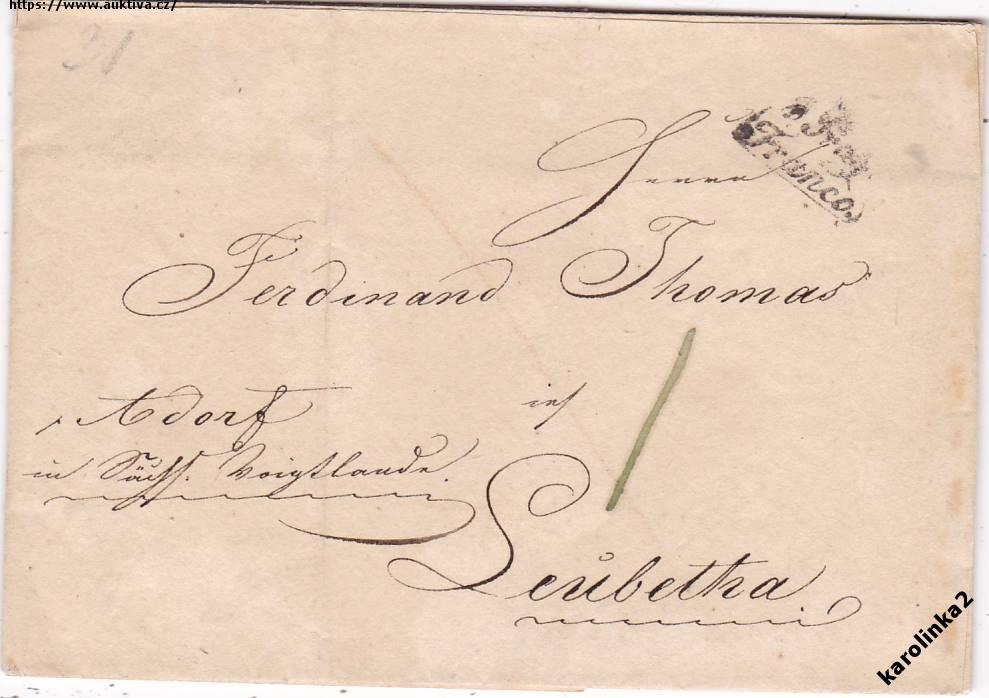 https://www.auktiva.cz/
Herrn
Franco
Ferdinand Thomas
Adorf
in
in Sächs. Voigtlande.
Leubetha
karolinka2